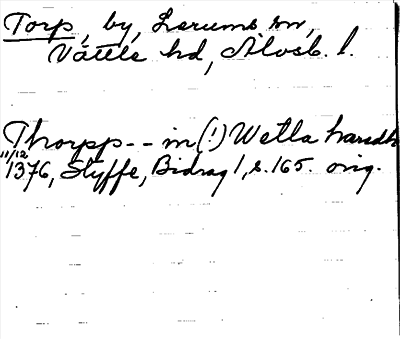 Torp, by, Lerums sn,
Vättle hd, Älvsb. l.
Thorpp -- in (!) Wetla hæradh
11/12
1376, Styffe, Bidrag 1, s. 165. orig.